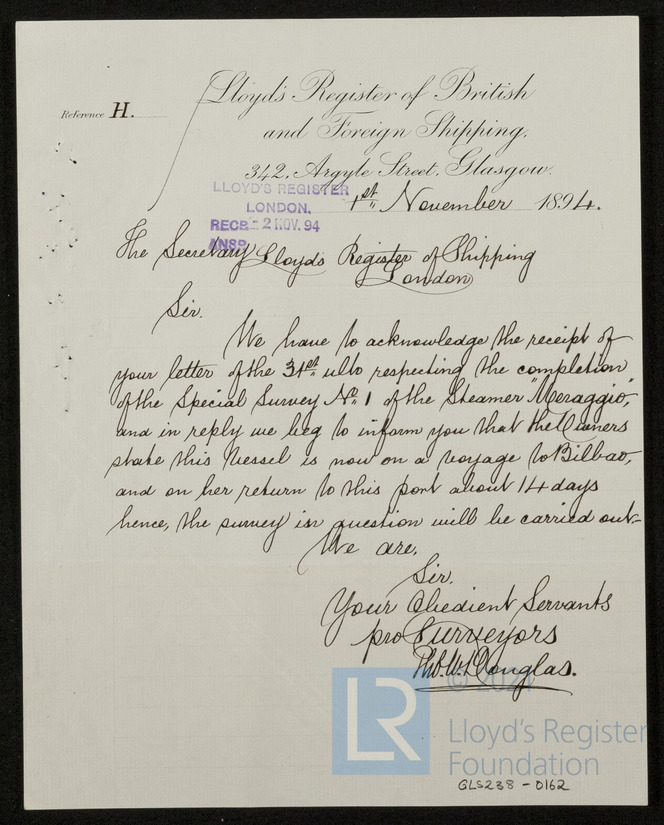 Lloyd's Register of British
Reference H.
and Foreign Shipping.
342, Argyle Street, Glasgow.
LLOYD'S REGISTER
LONDON.
1st November 1894.
RECD - 2 NOV. 94
ANSD
The Secretary Lloyds Register of Shipping
London
Sir.
We have to acknowledge the receipt of
your letter of the 31st ulto respecting the completion
of the Special Survey No. 1 of the Steamer "Meraggio",
and in reply we beg to inform you that the Owners
state this vessel is now on a voyage to Bilbao,
and on her return to this port about 14 days
hence, the survey in question will be carried out.
We are,
Sir.
Your Obedient Servants
pro Surveyors
W. Douglas.
© 2021
LR
Lloyd's Register
Foundation
GLS238-0162